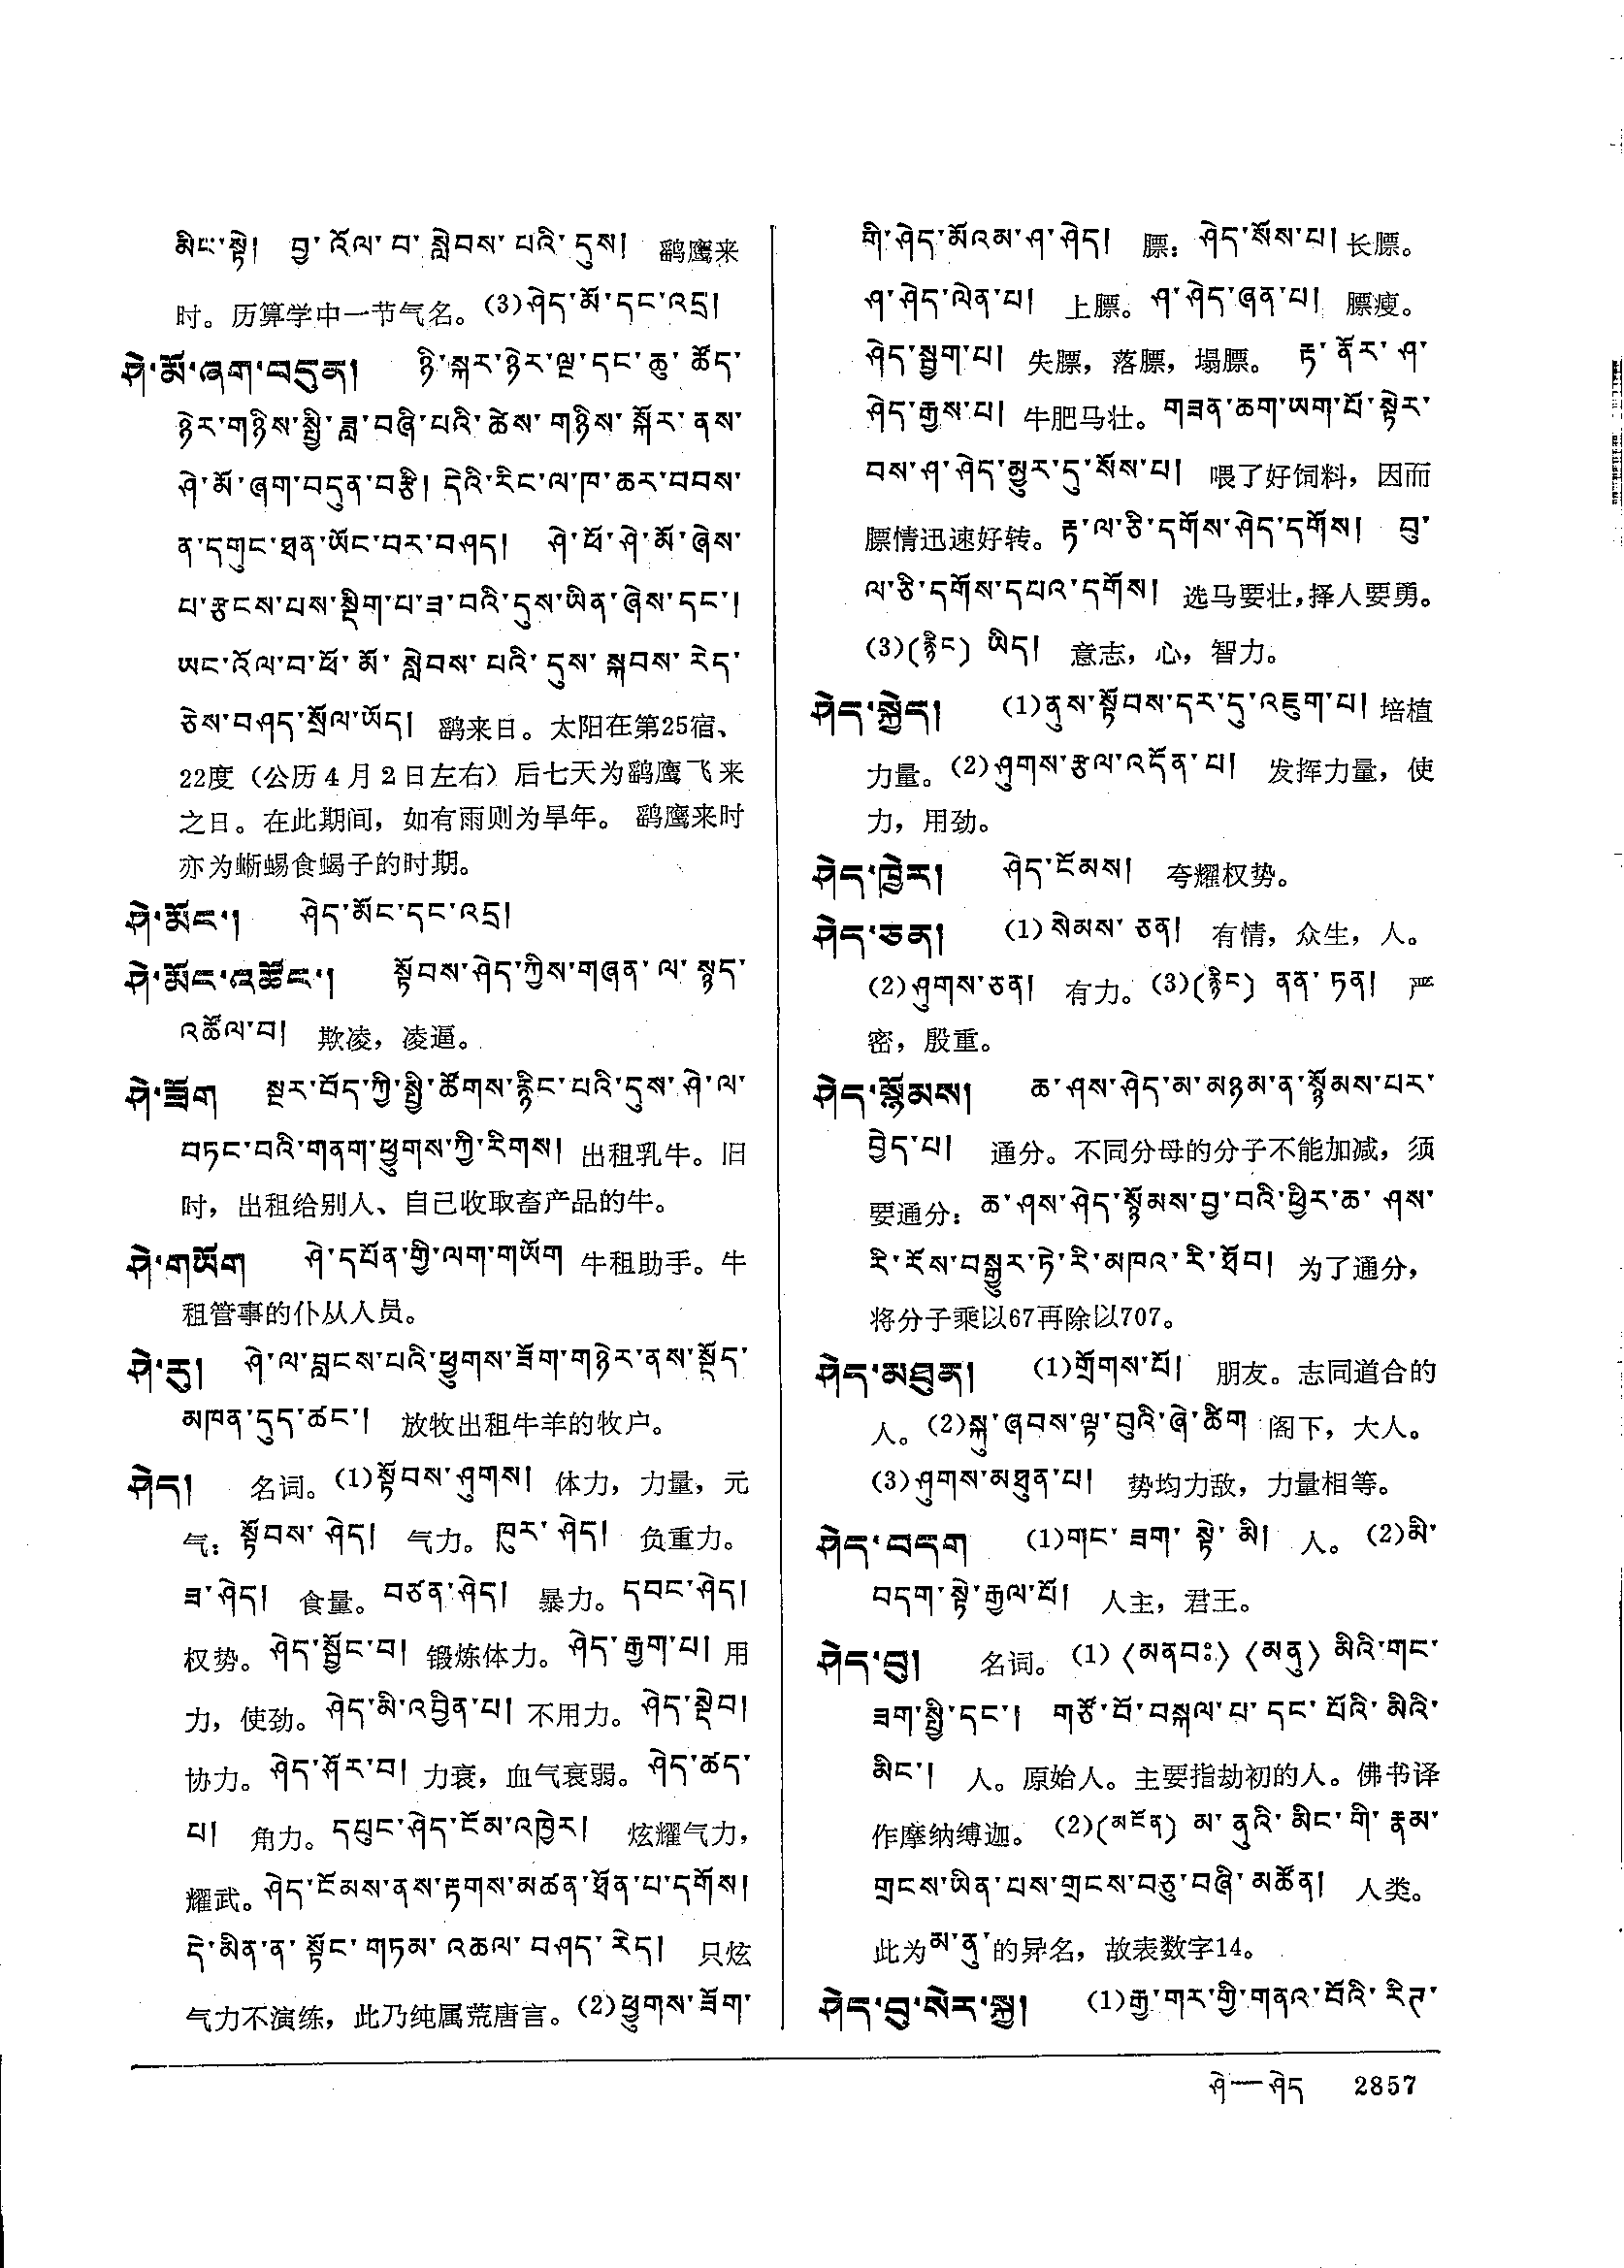 མིང་སྟེ། བྱ་འོལ་བ་སླེབས་པའི་དུས། 鹞鹰来
时。历算学中一节气名。(3)ཤེད་མོ་དང་འདྲ།
ཤེ་མོ་ཞག་བདུན། ཉི་སྐར་ཉེར་ལྔ་དང་ཆུ་ཚོད་
ཉེར་གཉིས་སྤྱི་ཟླ་བཞི་པའི་ཚེས་གཉིས་སྐོར་ནས་
ཤེ་མོ་ཞག་བདུན་བརྩི། དེའི་རིང་ལ་ཁ་ཆར་བབས་
ན་དགུང་ཐན་ཡོང་བར་བཤད། ཤེ་ཕོ་ཤེ་མོ་ཞེས་
པ་རྩངས་པས་སྡིག་པ་ཟ་བའི་དུས་ཡིན་ཞེས་དང་།
ཡང་འོལ་བ་ཕོ་མོ་སླེབས་པའི་དུས་སྐབས་རེད་
ཅེས་བཤད་སྲོལ་ཡོད། 鹞来日。太阳在第25宿、
22度（公历4月2日左右）后七天为鹞鹰飞来
之日。在此期间，如有雨则为旱年。 鹞鹰来时
亦为蜥蜴食蝎子的时期。
ཤེ་མོང་། ཤེད་མོང་དང་འདྲ།
ཤེ་མོང་འཚོང་། སྟོབས་ཤེད་ཀྱིས་གཞན་ལ་སྙད་
འཚོལ་བ། 欺凌，凌逼。
ཤེ་ཟོག སྔར་བོད་ཀྱི་སྤྱི་ཚོགས་རྙིང་པའི་དུས་ཤེ་ལ་
བཏང་བའི་གནག་ཕྱུགས་ཀྱི་རིགས། 出租乳牛。旧
时，出租给别人、自己收取畜产品的牛。
ཤེ་གཡོག ཤེ་དཔོན་གྱི་ལག་གཡོག 牛租助手。牛
租管事的仆从人员。
ཤེ་རུ། ཤེ་ལ་བླངས་པའི་ཕྱུགས་ཟོག་གཉེར་ནས་སྡོད་
མཁན་དུད་ཚང་། 放牧出租牛羊的牧户。
ཤེད། 名词。(1)སྟོབས་ཤུགས། 体力，力量，元
气：སྟོབས་ཤེད། 气力。ཁུར་ཤེད། 负重力。
ཟ་ཤེད། 食量。བཙན་ཤེད། 暴力。དབང་ཤེད།
权势。ཤེད་སྦྱོང་བ། 锻炼体力。ཤེད་རྒྱག་པ། 用
力，使劲。ཤེད་མི་འབྱིན་པ། 不用力。ཤེད་སྡེབ།
协力。ཤེད་ཤོར་བ། 力衰，血气衰弱。ཤེད་ཚད་
པ། 角力。དཔུང་ཤེད་ངོམ་འཁྱེར། 炫耀气力，
耀武。ཤེད་ངོམས་ནས་རྟགས་མཚན་ཐོན་པ་དགོས།
དེ་མིན་ན་སྟོང་གཏམ་འཆལ་བཤད་རེད། 只炫
气力不演练，此乃纯属荒唐言。(2)ཕྱུགས་ཟོག་
གི་ཤེད་མོའམ་ཤ་ཤེད། 膘：ཤེད་སོས་པ། 长膘。
ཤ་ཤེད་ལེན་པ། 上膘。ཤ་ཤེད་ཞན་པ། 膘瘦。
ཤེད་སྦྱག་པ། 失膘，落膘，塌膘。 རྟ་ནོར་ཤ་
ཤེད་རྒྱས་པ། 牛肥马壮。གཟན་ཆག་ཡག་པོ་སྟེར་
བས་ཤ་ཤེད་མྱུར་དུ་སོས་པ། 喂了好饲料，因而
膘情迅速好转。རྟ་ལ་ཅི་དགོས་ཤེད་དགོས། བུ་
ལ་ཅི་དགོས་དཔའ་དགོས། 选马要壮，择人要勇。
(3)(རྙིང) ཡིད། 意志，心，智力。
ཤེད་སྐྱེད། (1)ནུས་སྟོབས་དར་དུ་འཇུག་པ། 培植
力量。(2)ཤུགས་རྩལ་འདོན་པ། 发挥力量，使
力，用劲。
ཤེད་ཁྱེར། ཤེད་ངོམས། 夸耀权势。
ཤེད་ཅན། (1)སེམས་ཅན། 有情，众生，人。
(2)ཤུགས་ཅན། 有力。(3)(རྙིང) ནན་ཏན། 严
密，殷重。
ཤེད་སྙོམས། ཆ་ཤས་ཤེད་མ་མཉམ་ན་སྙོམས་པར་
བྱེད་པ། 通分。不同分母的分子不能加减，须
要通分：ཆ་ཤས་ཤེད་སྙོམས་བྱ་བའི་ཕྱིར་ཆ་ཤས་
རི་ངོས་བསྒྱུར་ཏེ་རི་མཁའ་རི་ཐོབ། 为了通分，
将分子乘以67再除以707。
ཤེད་མཐུན། (1)གྲོགས་པོ། 朋友。志同道合的
人。(2)སྐུ་ཞབས་ལྟ་བུའི་ཞེ་ཚིག 阁下，大人。
(3)ཤུགས་མཐུན་པ། 势均力敌，力量相等。
ཤེད་བདག (1)གང་ཟག་སྟེ་མི། 人。(2)མི་
བདག་སྟེ་རྒྱལ་པོ། 人主，君王。
ཤེད་བུ། 名词。(1)〈མནབཿ〉〈མནུ〉མིའི་གང་
ཟག་སྤྱི་དང་། གཙོ་བོ་བསྐལ་པ་དང་པོའི་མིའི་
མིང་། 人。原始人。主要指劫初的人。佛书译
作摩纳缚迦。(2)(མངོན) མ་ནུའི་མིང་གི་རྣམ་
གྲངས་ཡིན་པས་གྲངས་བཅུ་བཞི་མཚོན། 人类。
此为མ་ནུ་的异名，故表数字14。
ཤེད་བུ་སེར་སྐྱ། (1)རྒྱ་གར་གྱི་གནའ་བོའི་རིཊ་
ཤེ—ཤེད 2857